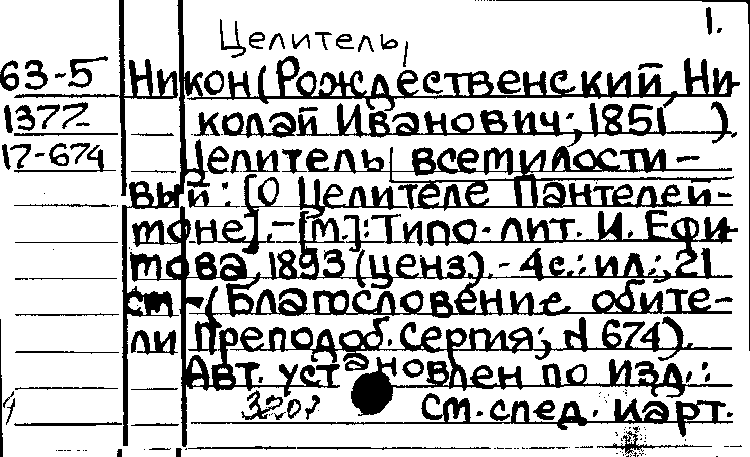 1.
Целитель
63-5 Никон (Рождественский, Ни-
1377 колай Иванович; 1851 ).
17-674 Целитель всемилости-
вый: [О Целителе Пантелей-
моне]. - [М.]: Типо-лит. И. Ефи-
мова, 1893 (ценз.). - 4 с.: ил.; 21
см - (Благословение обите-
ли Преподоб. Сергия; N 674).
Авт. установлен по изд.:
см. спец. карт.